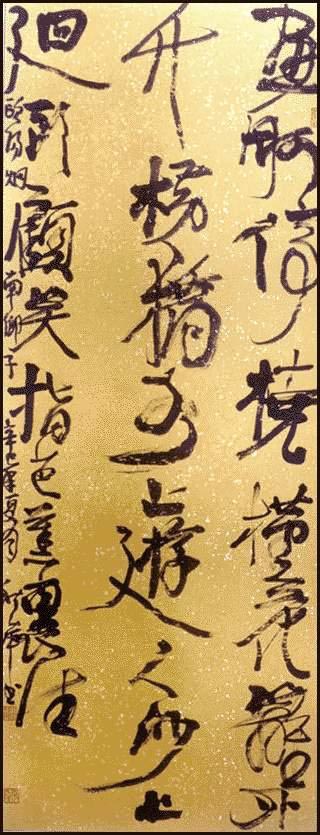 畫舸停橈槿花籬外
竹橫橋水上遊人沙上
迴顧笑指芭蕉裏住
歐陽炯南鄉子辛巳年夏月書